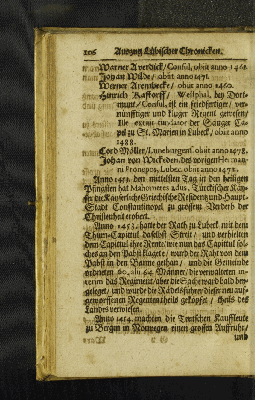 106 Auszug Lübischer Chronicken.
Warner Averdick/ Consul, obiit anno 1461.
Johan Wilde/ obiit anno 1471.
Werner Arembecke/ obiit anno 1460.
Hinrich Kastorff/ Westphal, bey Dort-
munt/ Consul, ist ein friedfertiger/ ver-
nünfftiger und kluger Regent gewesen/
Ille fundator der Sanger Ca-
pel zu St. Marien in Lubeck/ obiit anno
1488.
Cord Möller/ Lunæburgens. obiit anno 1478.
Johan von Wickeden, des vorigen Herman-
ni Pronepos, Lubec. obiit anno 1471.
Anno 1453. den mittelsten Tag in den heiligen
Pfingsten hat Mahometes 2dus, Türckischer Käy-
ser die Käyserliche Griechische Residentz und Haupt-
Stadt Constantinopel zu grossem Verderb der
Christenheit erobert.
Anno 1453. hatte der Rath zu Lubeck mit dem
Thum-Capittul daselbst Streit/ und verhielten
dem Capittul ihre Rente/ wie nun das Capittul sol-
ches an den Pabst klagete/ wurd der Raht von dem
Pabst in den Banne gethan/ und die Gemeinde
ordneten 60. als 64. Männer/ die verwalteten in-
nerm das Regiment/ aber die Sache ward bald bey-
geleget/ und wurde die Rädelsführer dieser neu auff-
geworffenen Regenten theils geköpfet/ theils des
Landes verwiesen.
Anno 1454. machten die Teutschen Kauffleute
zu Bergen in Norwegen einen grossen Auffruhr/
und